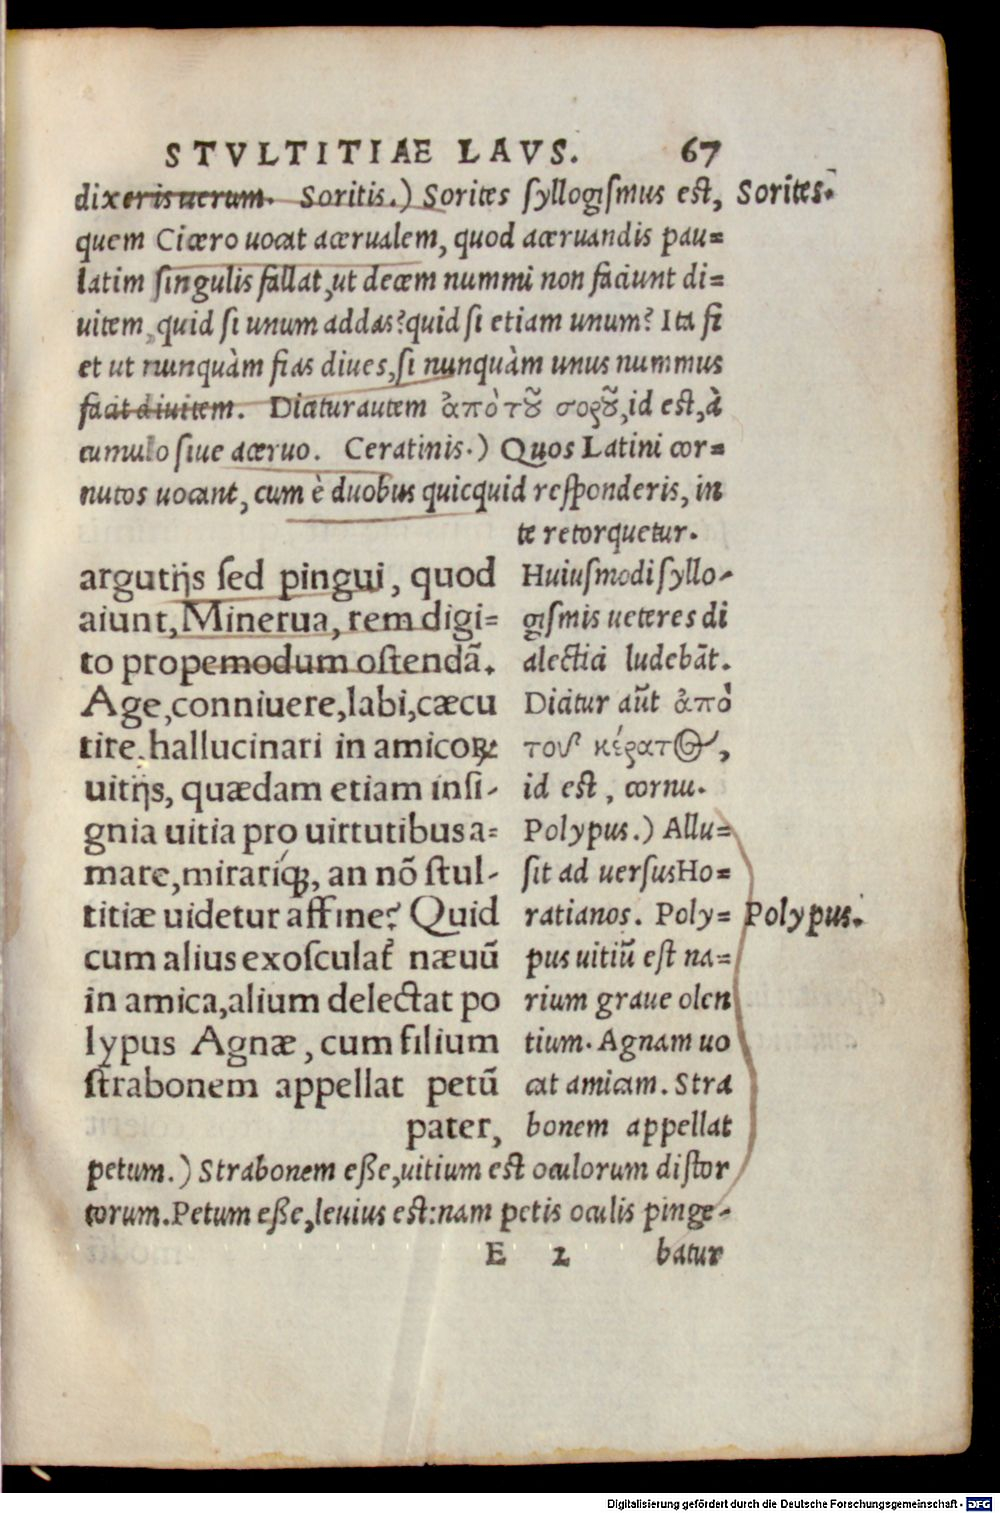 STVLTITIAE LAVS. 67
dixeris uerum. Soritis.) Sorites syllogismus est, Sorites.
quem Cicero uocat acerualem, quod aceruandis pau=
latim singulis fallat, ut decem nummi non faciunt di=
uitem, quid si unum addas? quid si etiam unum? Ita fi
et ut nunquàm fias diues, si nunquàm unus nummus
facit diuitem. Dicitur autem ἀπὸ τȣ͂ σορȣ͂, id est, à
cumulo siue aceruo. Ceratinis.) Quos Latini cor=
nutos uocant, cum è duobus quicquid responderis, in
te retorquetur.
argutijs sed pingui, quod
aiunt, Minerua, rem digi=
to propemodum ostendã.
Age, conniuere, labi, cæcu
tire, hallucinari in amicoꝝ
uitijs, quædam etiam insi-
gnia uitia pro uirtutibus a=
mare, mirariq́ꝫ, an nõ stul-
titiæ uidetur affine? Quid
cum alius exosculat᷑ næuũ
in amica, alium delectat po
lypus Agnæ, cum filium
strabonem appellat petũ
pater,
Huiusmodi syllo-
gismis ueteres di
alectici ludebãt.
Dicitur aũt ἀπὸ
τοῦ κέρατος,
id est, cornu.
Polypus.) Allu=
sit ad uersus Ho=
ratianos. Poly= Polypus.
pus uitiũ est na=
rium graue olen
tium. Agnam uo
cat amicam. Stra
bonem appellat
petum.) Strabonem eße, uitium est oculorum distor
torum. Petum eße, leuius est: nam petis oculis pinge-
E 2 batur
Digitalisierung gefördert durch die Deutsche Forschungsgemeinschaft - DFG